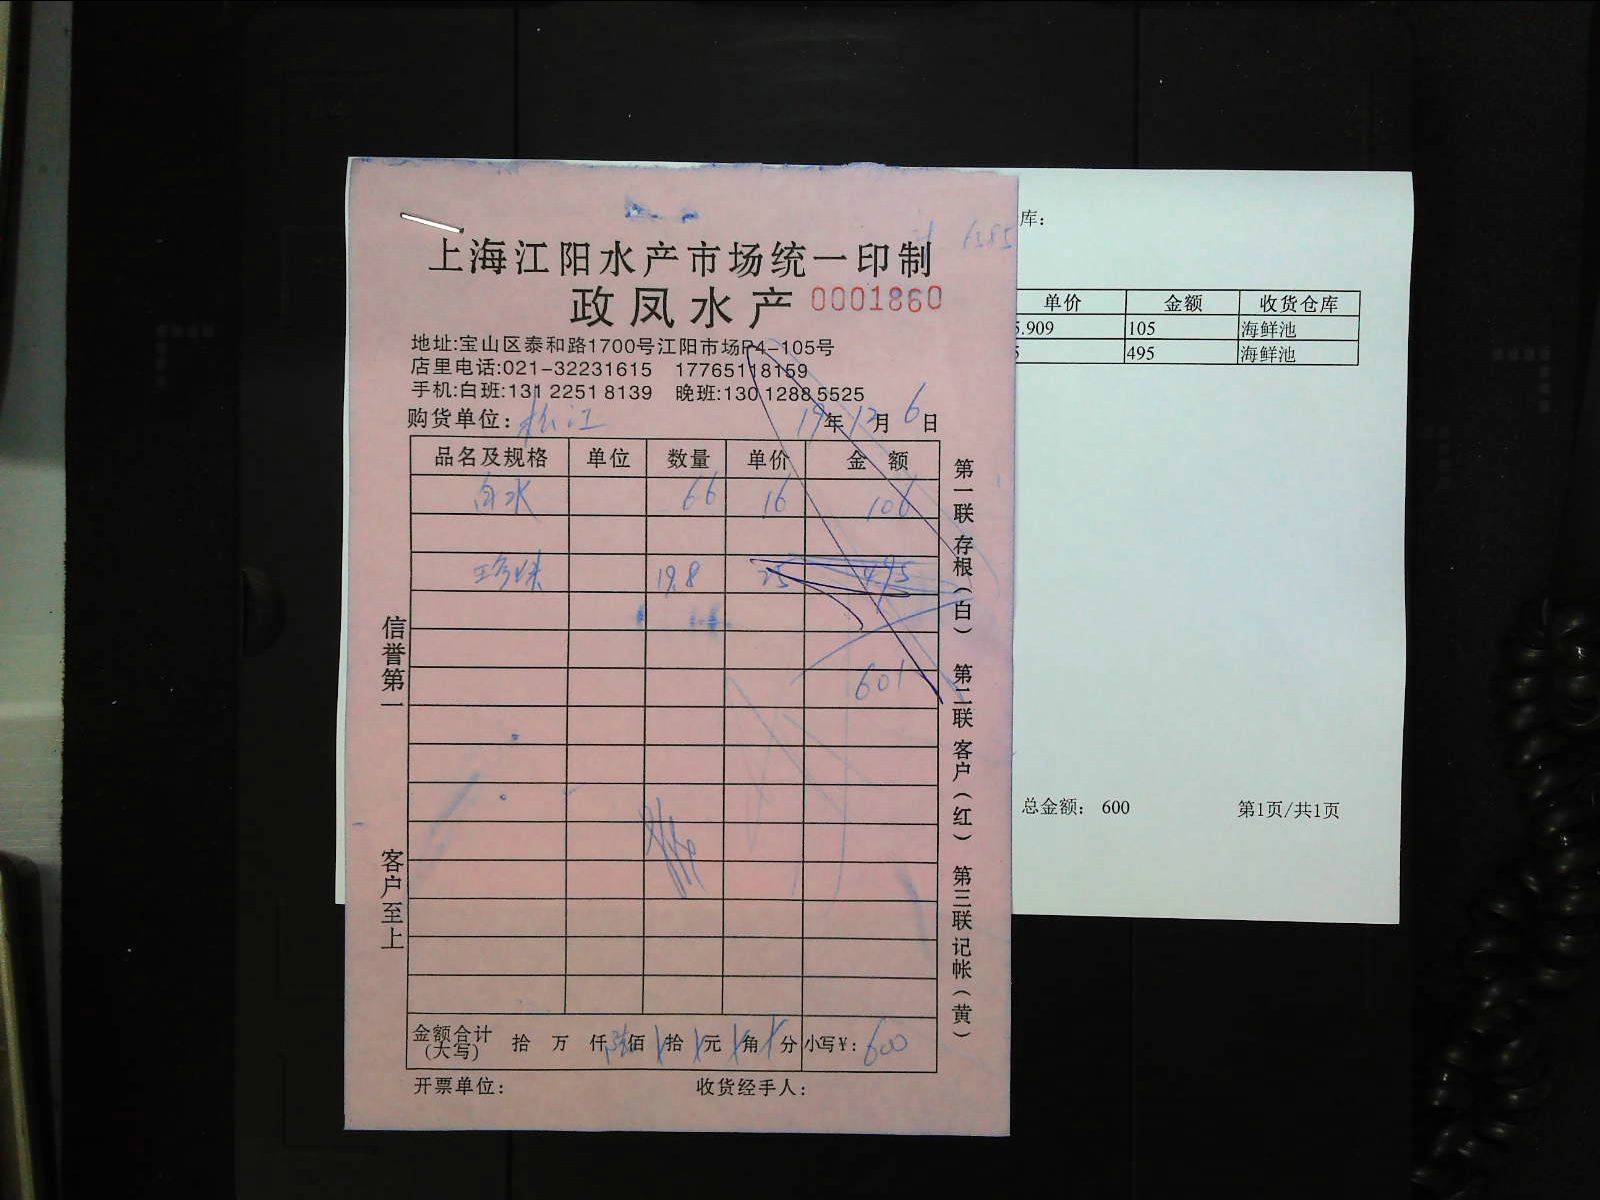 上海江阳水产市场统一印制
政凤水产 0001860
地址:宝山区泰和路1700号江阳市场P4-105号
店里电话:021-32231615 17765118159
手机:白班:131 2251 8139 晚班:130 1288 5525
购货单位: 松江 19年12月6日
品名及规格 单位 数量 单价 金额
白水 66 16 106
珍珠 19.8 25 495
601
金额合计(大写) 拾 万 仟 陆佰 拾 元 角 分 小写¥: 600
开票单位: 收货经手人:
信誉第一
客户至上
第一联 存根(白) 第二联 客户(红) 第三联 记帐(黄)
库:
单价 金额 收货仓库
5.909 105 海鲜池
5 495 海鲜池
总金额: 600 第1页/共1页